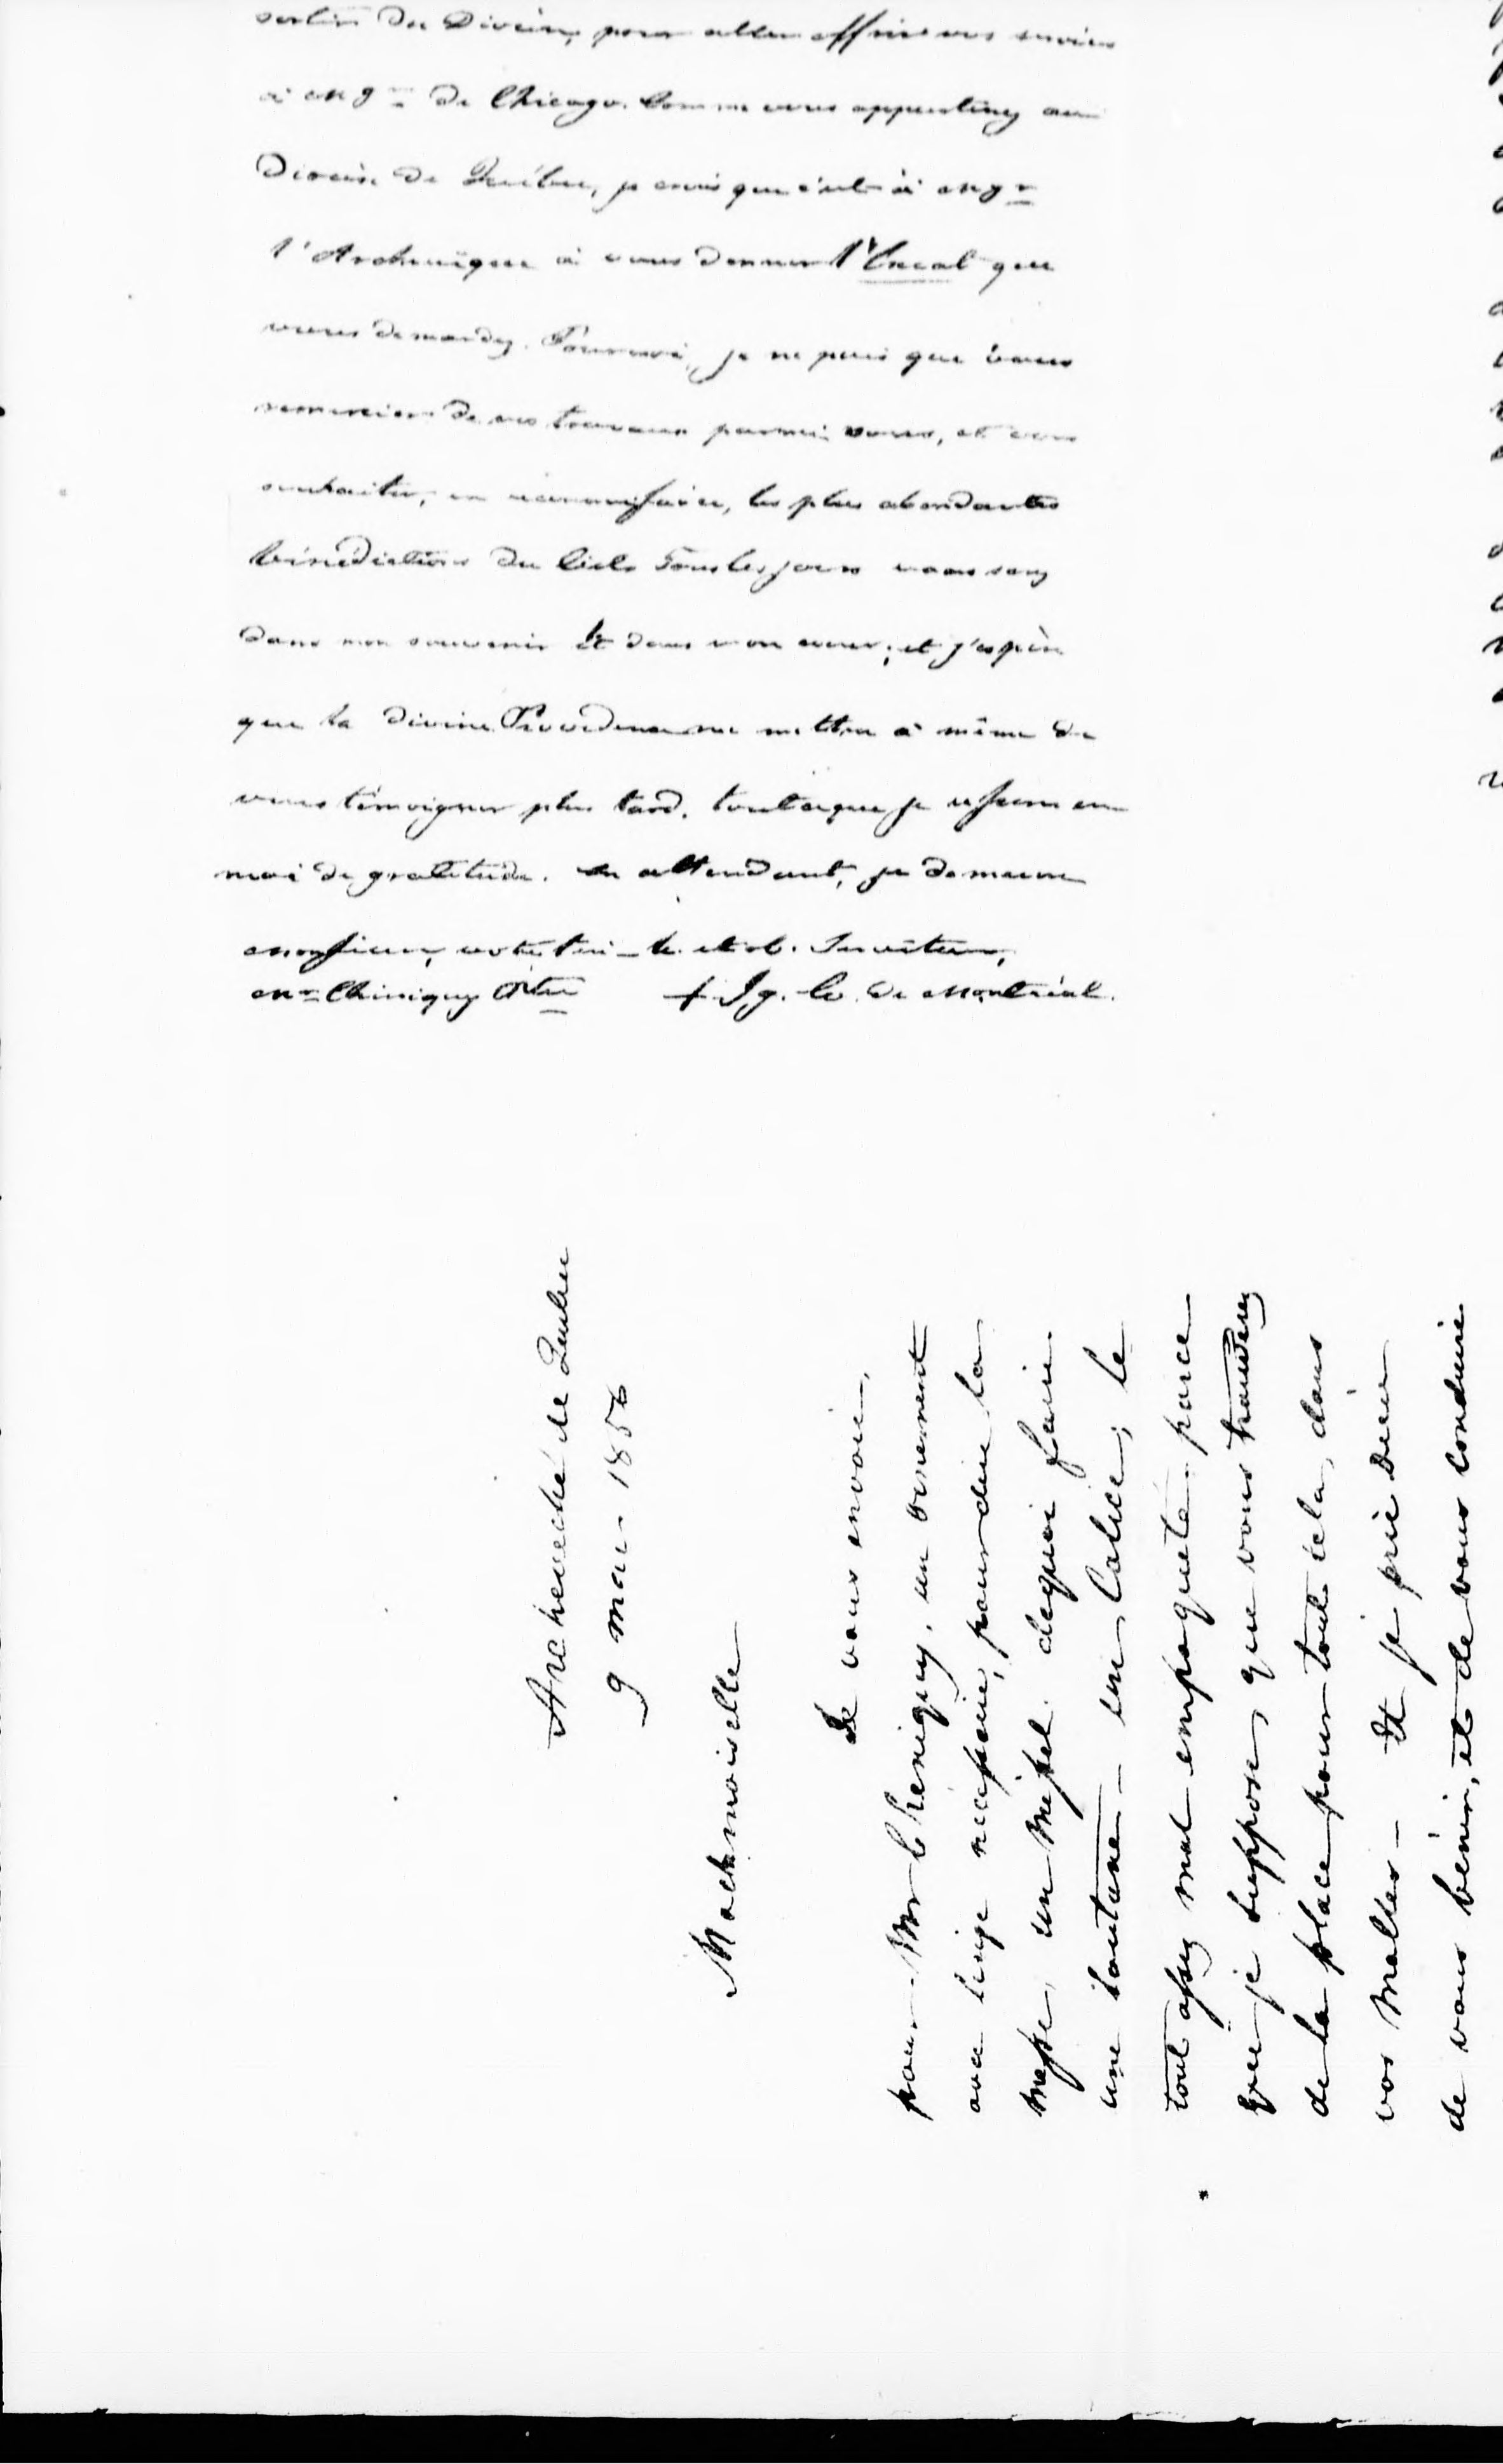 sortir du Diocèse, pour aller offrir vos services
à Mgr de Chicago. Comme vous appartenez au
Diocèse de Québec, je crois que c'est à Mgr
l'Archevêque à vous donner l'Exeat que
vous demandez. Pour moi, je ne puis que vous
remercier de vos travaux parmi nous, et vous
souhaiter, en reconnaissance, les plus abondantes
bénédictions du Ciel. Tous les jours vous serez
dans mon souvenir et dans mon cœur; et j'espère
que la divine Providence me mettra à même de
vous témoigner plus tard, tout ce que je ressens en
moi de gratitude. En attendant, je demeure
Monsieur, votre très-h. et ob. Serviteur,
Mr Chiniquy Ptre + Ig. Ev. de Montréal.
Archeveché de Québec
9 mai 1856
Mademoiselle
Je vous envoie,
pour Mr Chiniquy, un ornement
avec linge nécessaire, pour dire la
Messe, un Missel. dequoi faire
une soutane – un Calice; le
tout assez mal empaqueté parce
que je suppose que vous trouverez
de la place pour tout cela, dans
vos Malles – Et je prie Dieu
de vous bénir, et de vous conduire